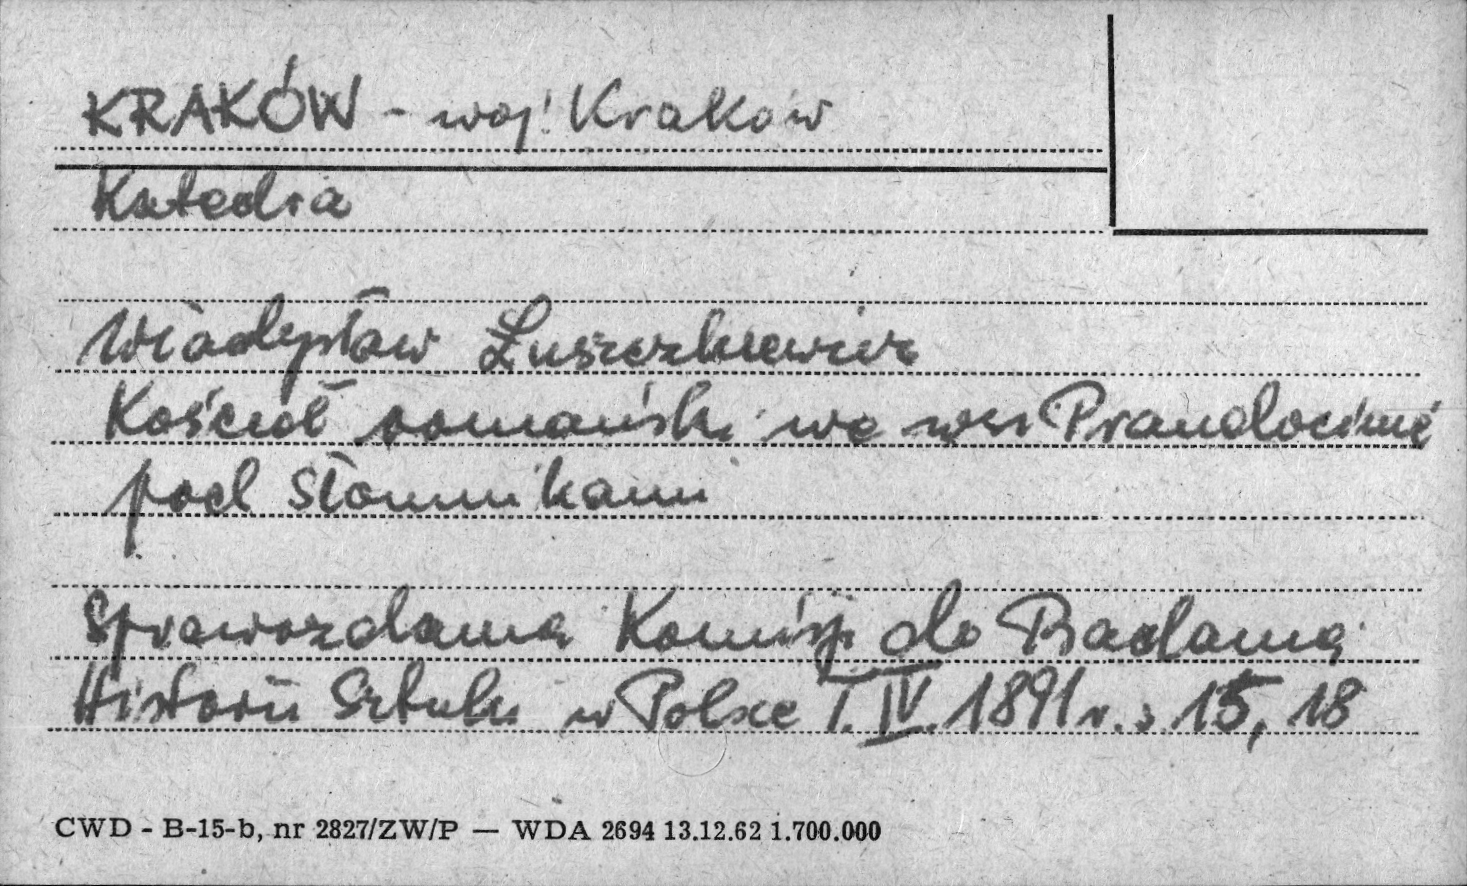 KRAKÓW - woj. Kraków
Katedra
Władysław Łuszczkiewicz
Kościół romański we wsi Prandocinie
pod Słomnikami
Sprawozdania Komisji do Badania
Historii Sztuki w Polsce T. IV. 1891 r. s. 15, 18
CWD - B-15-b, nr 2827/ZW/P — WDA 2694 13.12.62 1.700.000